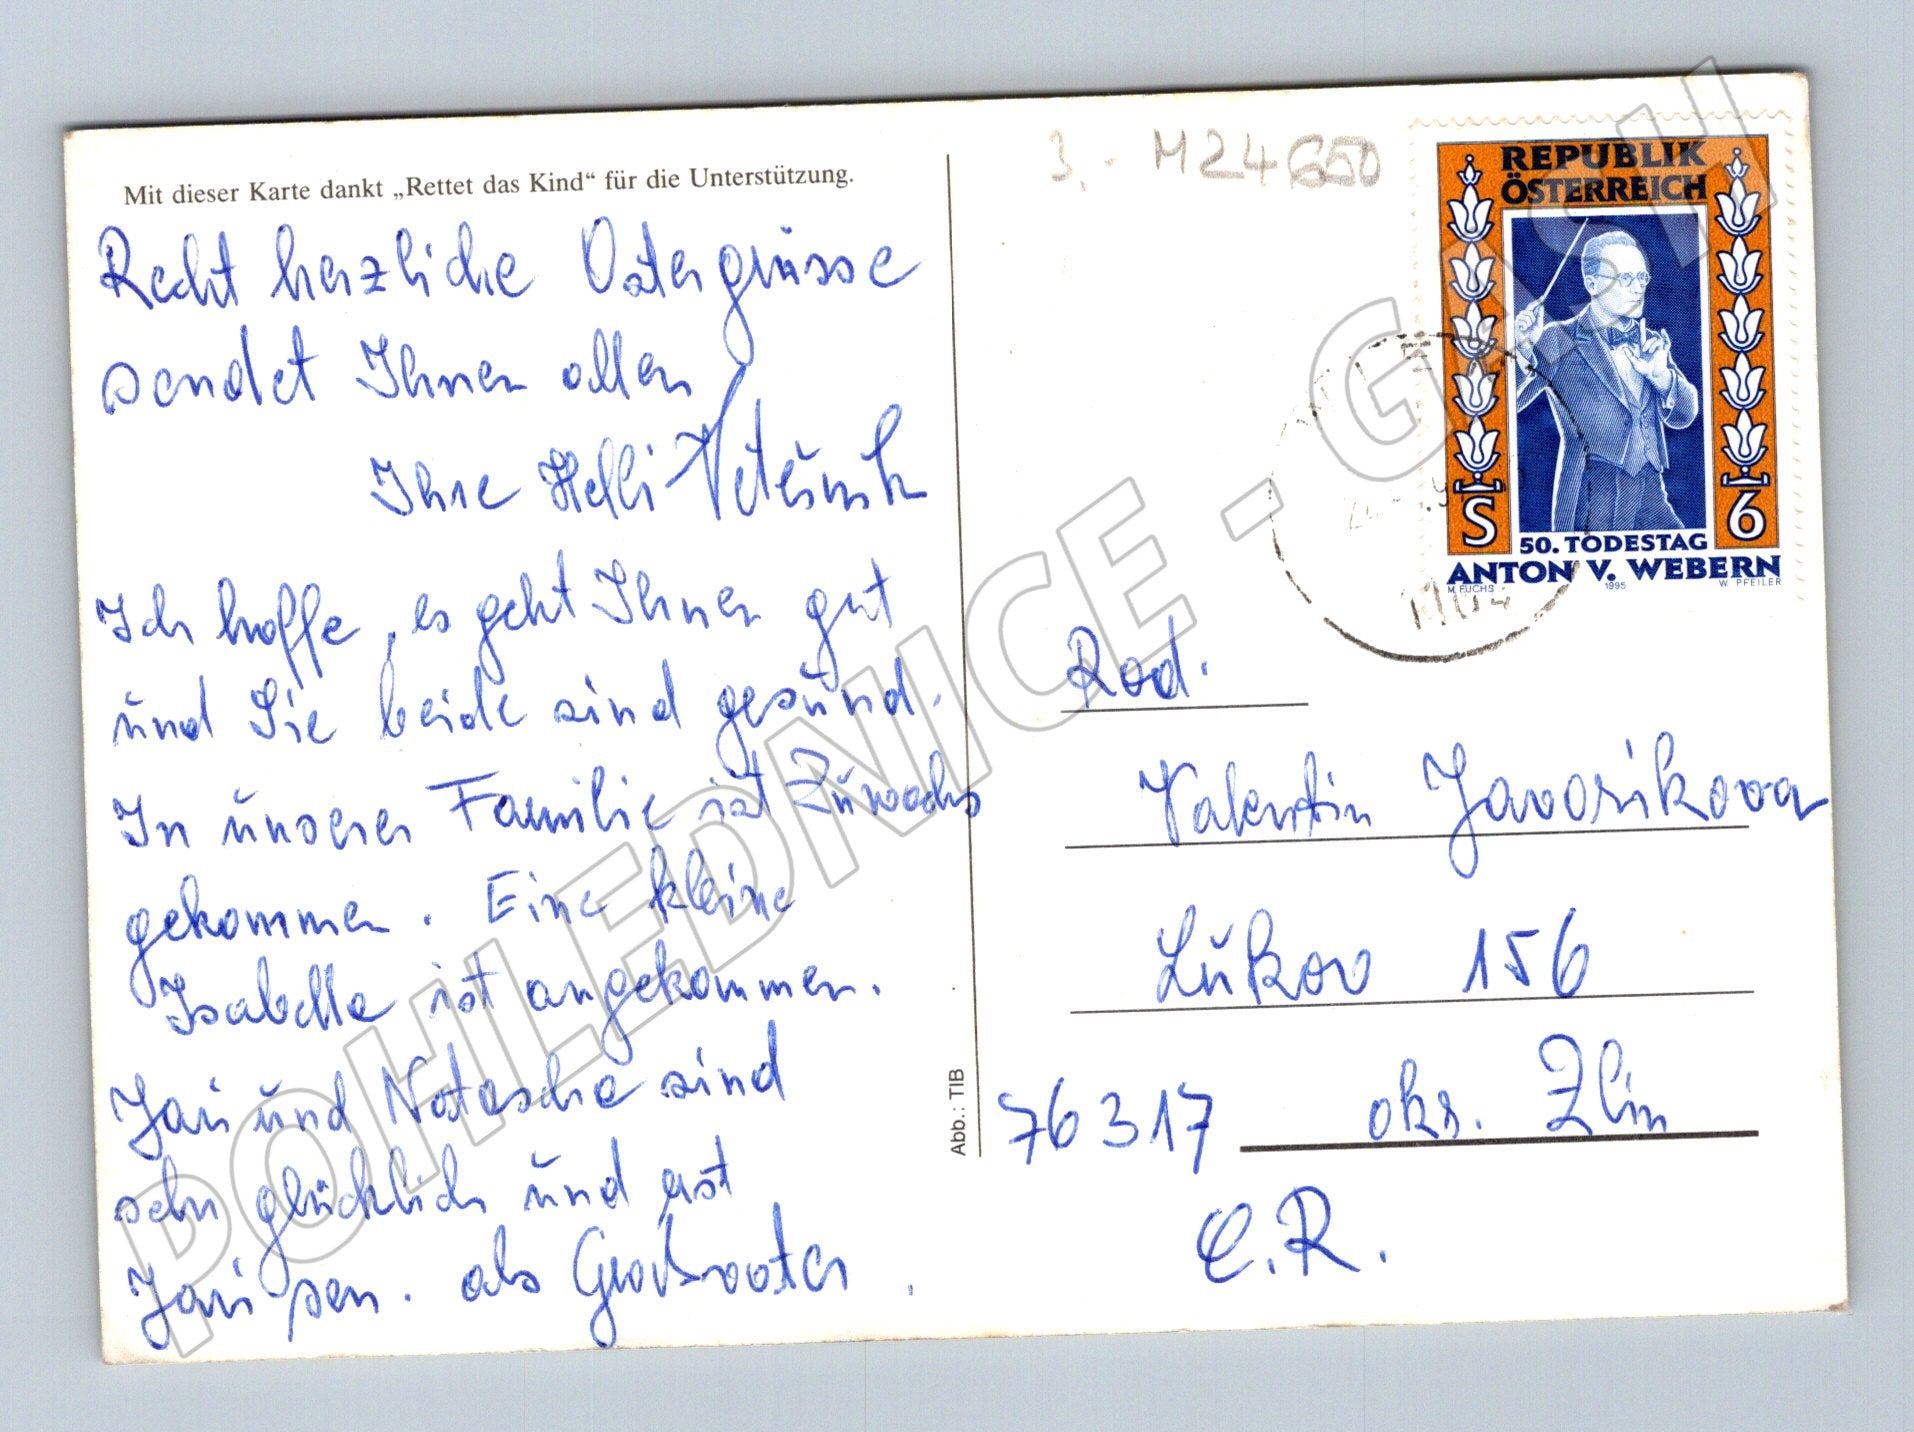 Mit dieser Karte dankt „Rettet das Kind“ für die Unterstützung.
Recht herzliche Ostergrüsse
sendet Ihnen allen
Ihre Helli
Ich hoffe, es geht Ihnen gut
und Sie beide sind gesund.
In unserer Familie ist Zuwachs
gekommen. Eine kleine
Isabella ist angekommen.
Jari und Natascha sind
sehr glücklich und erst
Jari sen. als Grossvater.
Abb.: TIB
3,- M24 650
REPUBLIK
ÖSTERREICH
S 6
50. TODESTAG
ANTON V. WEBERN
M. FUCHS 1995 W. PFEILER
Rod.
Valentin Javorikova
Lukov 156
76317 okr. Zlin
C.R.
POHLEDNICE - GASH